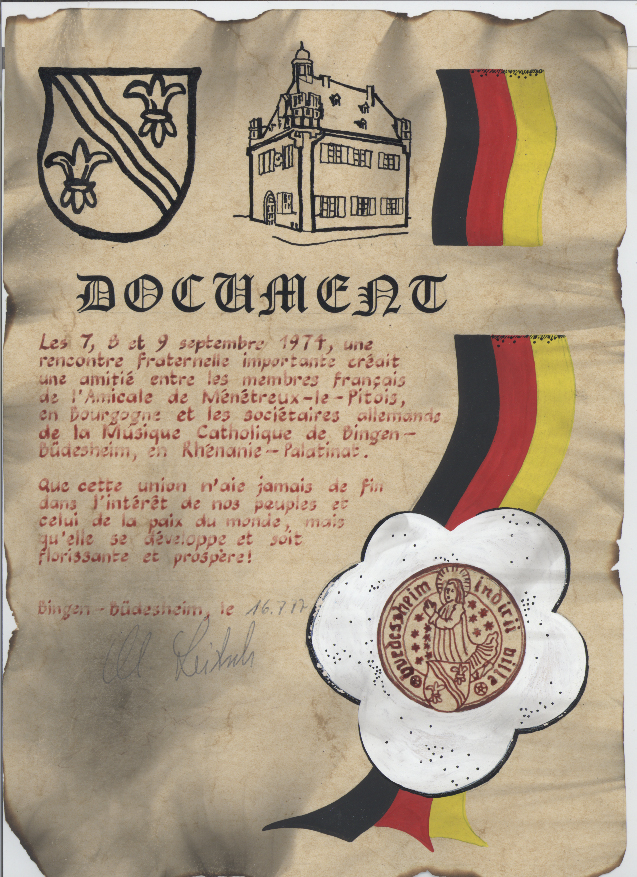 DOCUMENT
Les 7, 8 et 9 septembre 1974, une
rencontre fraternelle importante créait
une amitié entre les membres français
de l'Amicale de Ménétreux-le-Pitois,
en Bourgogne et les sociétaires allemands
de la Musique Catholique de Bingen-
Büdesheim, en Rhénanie-Palatinat.
Que cette union n'aie jamais de fin
dans l'intérêt de nos peuples et
celui de la paix du monde, mais
qu'elle se développe et soit
florissante et prospère!
Bingen-Büdesheim, le 16.7.17
buedessheim indicii